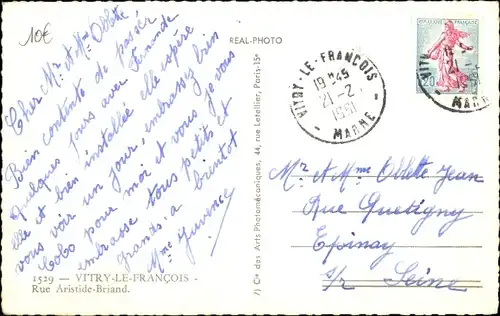 10€
Cher Mr et Mme Oblette
Bien contente de passer
quelques jours avec Fernande
elle est bien installée elle espère
vous voir un jour, embrassez bien
Coco pour moi et vous je vous
embrasse tous petits et
grands. a bientôt
Mme Juvence
1529 — VITRY-LE-FRANÇOIS -
Rue Aristide-Briand.
REAL-PHOTO
Cie des Arts Photomécaniques, 44, rue Letellier, Paris-15e
VITRY-LE-FRANÇOIS
19H45
12-2
1961
MARNE
REPUBLIQUE FRANÇAISE
0,20
VIT
MARNE
Mr et Mme Oblette Jean
Rue Quetigny
Epinay
s/r Seine